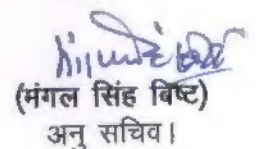 (मंगल सिंह विष्ट)
अनु सचिव।